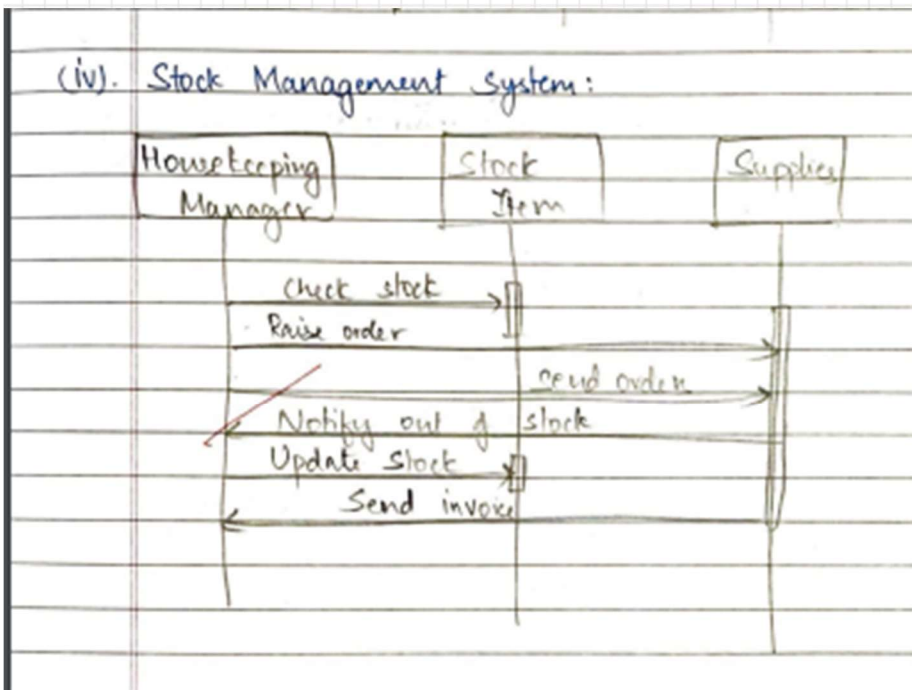 (iv). Stock Management System:
Housekeeping
Manager
Stock
Item
Supplier
Check stock
Raise order
Send order
Notify out of stock
Update Stock
Send invoice